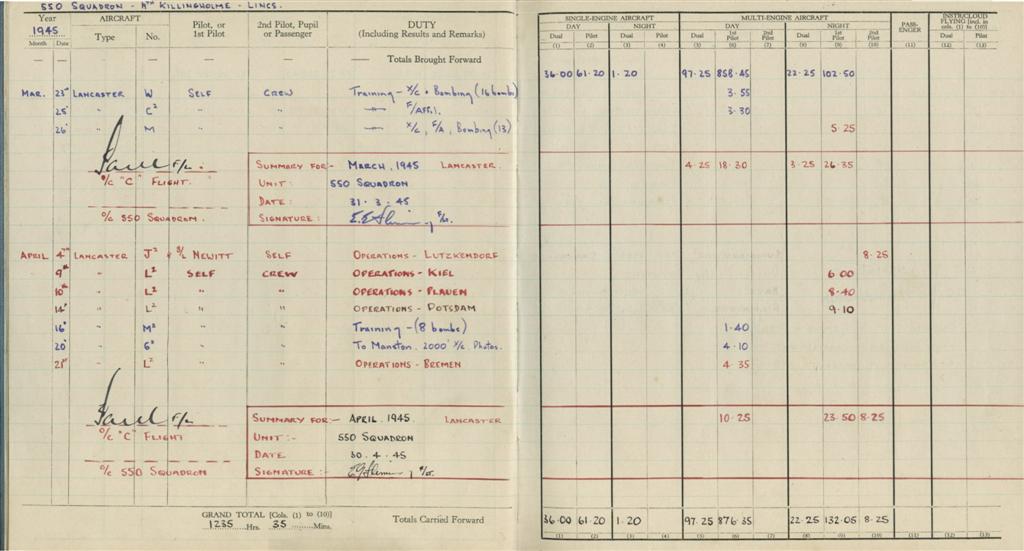 550 SQUADRON - NTH KILLINGHOLME - LINCS.
Year AIRCRAFT Pilot, or 2nd Pilot, Pupil DUTY
1945 1st Pilot or Passenger (Including Results and Remarks)
Month Date Type No.
SINGLE-ENGINE AIRCRAFT MULTI-ENGINE AIRCRAFT PASS-ENGER INSTR/CLOUD FLYING [Incl. in cols. (1) to (10)]
DAY NIGHT DAY NIGHT
Dual Pilot Dual Pilot Dual 1st Pilot 2nd Pilot Dual 1st Pilot 2nd Pilot Dual Pilot
(1) (2) (3) (4) (5) (6) (7) (8) (9) (10) (11) (12) (13)
— — — — — — — Totals Brought Forward
36.00 61.20 1.20 97.25 858.45 22.25 102.50
MAR. 23rd LANCASTER W SELF CREW Training - X/C & Bombing (16 bombs) 3.55
25" " C2 " " — F/Affil. 3.30
26" " M " " — X/C, F/A, Bombing (13) 5.25
F/L.
O/C "C" FLIGHT.
O/C 550 SQUADRON.
SUMMARY FOR:- MARCH, 1945 LANCASTER. 4.25 18.30 3.25 26.35
UNIT: 550 SQUADRON
DATE: 31.3.45
SIGNATURE:
APRIL 4TH LANCASTER J2 S/L NEWITT SELF OPERATIONS - LUTZKENDORF 8.25
9th " L2 SELF CREW OPERATIONS - KIEL 6.00
10th " L2 " " OPERATIONS - PLAUEN 8.40
14" " L2 " " OPERATIONS - POTSDAM 9.10
16" " M2 " " Training - (8 bombs) 1.40
20" " G2 " " To Manston. 2000' X/C. Photos. 4.10
21st " L2 " " OPERATIONS - BREMEN 4.35
F/L.
O/C "C" FLIGHT
O/C 550 SQUADRON
SUMMARY FOR:- APRIL. 1945. LANCASTER 10.25 23.50 8.25
UNIT:- 550 SQUADRON
DATE 30.4.45
SIGNATURE:-
GRAND TOTAL [Cols. (1) to (10)]
1235 Hrs. 35 Mins. Totals Carried Forward
36.00 61.20 1.20 97.25 876.35 22.25 132.05 8.25
(1) (2) (3) (4) (5) (6) (7) (8) (9) (10) (11) (12) (13)